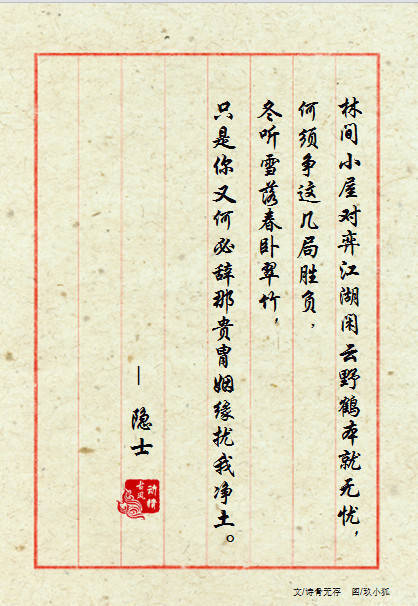 林间小屋对弈江湖闲云野鹤本就无忧，
何须争这几局胜负，
冬听雪落春卧翠竹，
只是你又何必辞那贵胄姻缘扰我净土。
—隐士
诗情
古风
文/诗骨无存 图/玖小孤